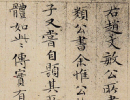 右趙文敏公所書
類公書余惟公
子又嘗自題其
體如此傳實有